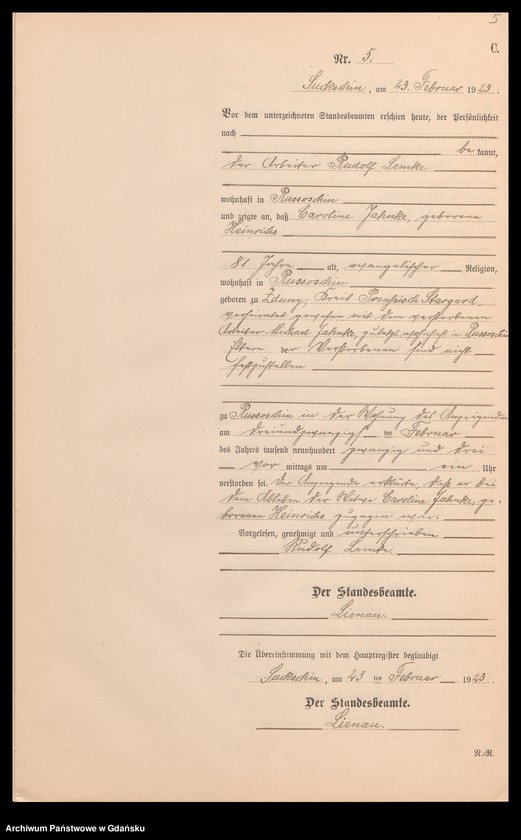 5
C.
Nr. 5.
Suckschin, am 23. Februar 1923.
Vor dem unterzeichneten Standesbeamten erschien heute, der Persönlichkeit
nach
be kannt,
der Arbeiter Rudolf Lemke
wohnhaft in Russoschin
und zeigte an, daß Caroline Jahnke, geborene
Heinrichs
81 Jahre alt, evangelischer Religion,
wohnhaft in Russoschin
geboren zu Zduny, Kreis Preußisch Stargard,
verheiratet gewesen mit dem verstorbenen
Arbeiter Michael Jahnke, zuletzt wohnhaft in Russoschin
Eltern der Verstorbenen sind nicht
festzustellen
zu Russoschin in der Wohnung des Anzeigenden
am dreiundzwanzigsten Februar
des Jahrs tausend neunhundert zwanzig und drei
vor mittags um ein Uhr
verstorben sei. Der Anzeigende erklärte, daß er bei
dem Ableben der Witwe Caroline Jahnke, ge-
borenen Heinrichs zugegen war.
Vorgelesen, genehmigt und unterschrieben
Rudolf Lemke.
Der Standesbeamte.
Lienau.
Die Übereinstimmung mit dem Hauptregister beglaubigt
Suckschin, am 23 ten Februar 1923.
Der Standesbeamte.
Lienau.
N.-R.
Archiwum Państwowe w Gdańsku